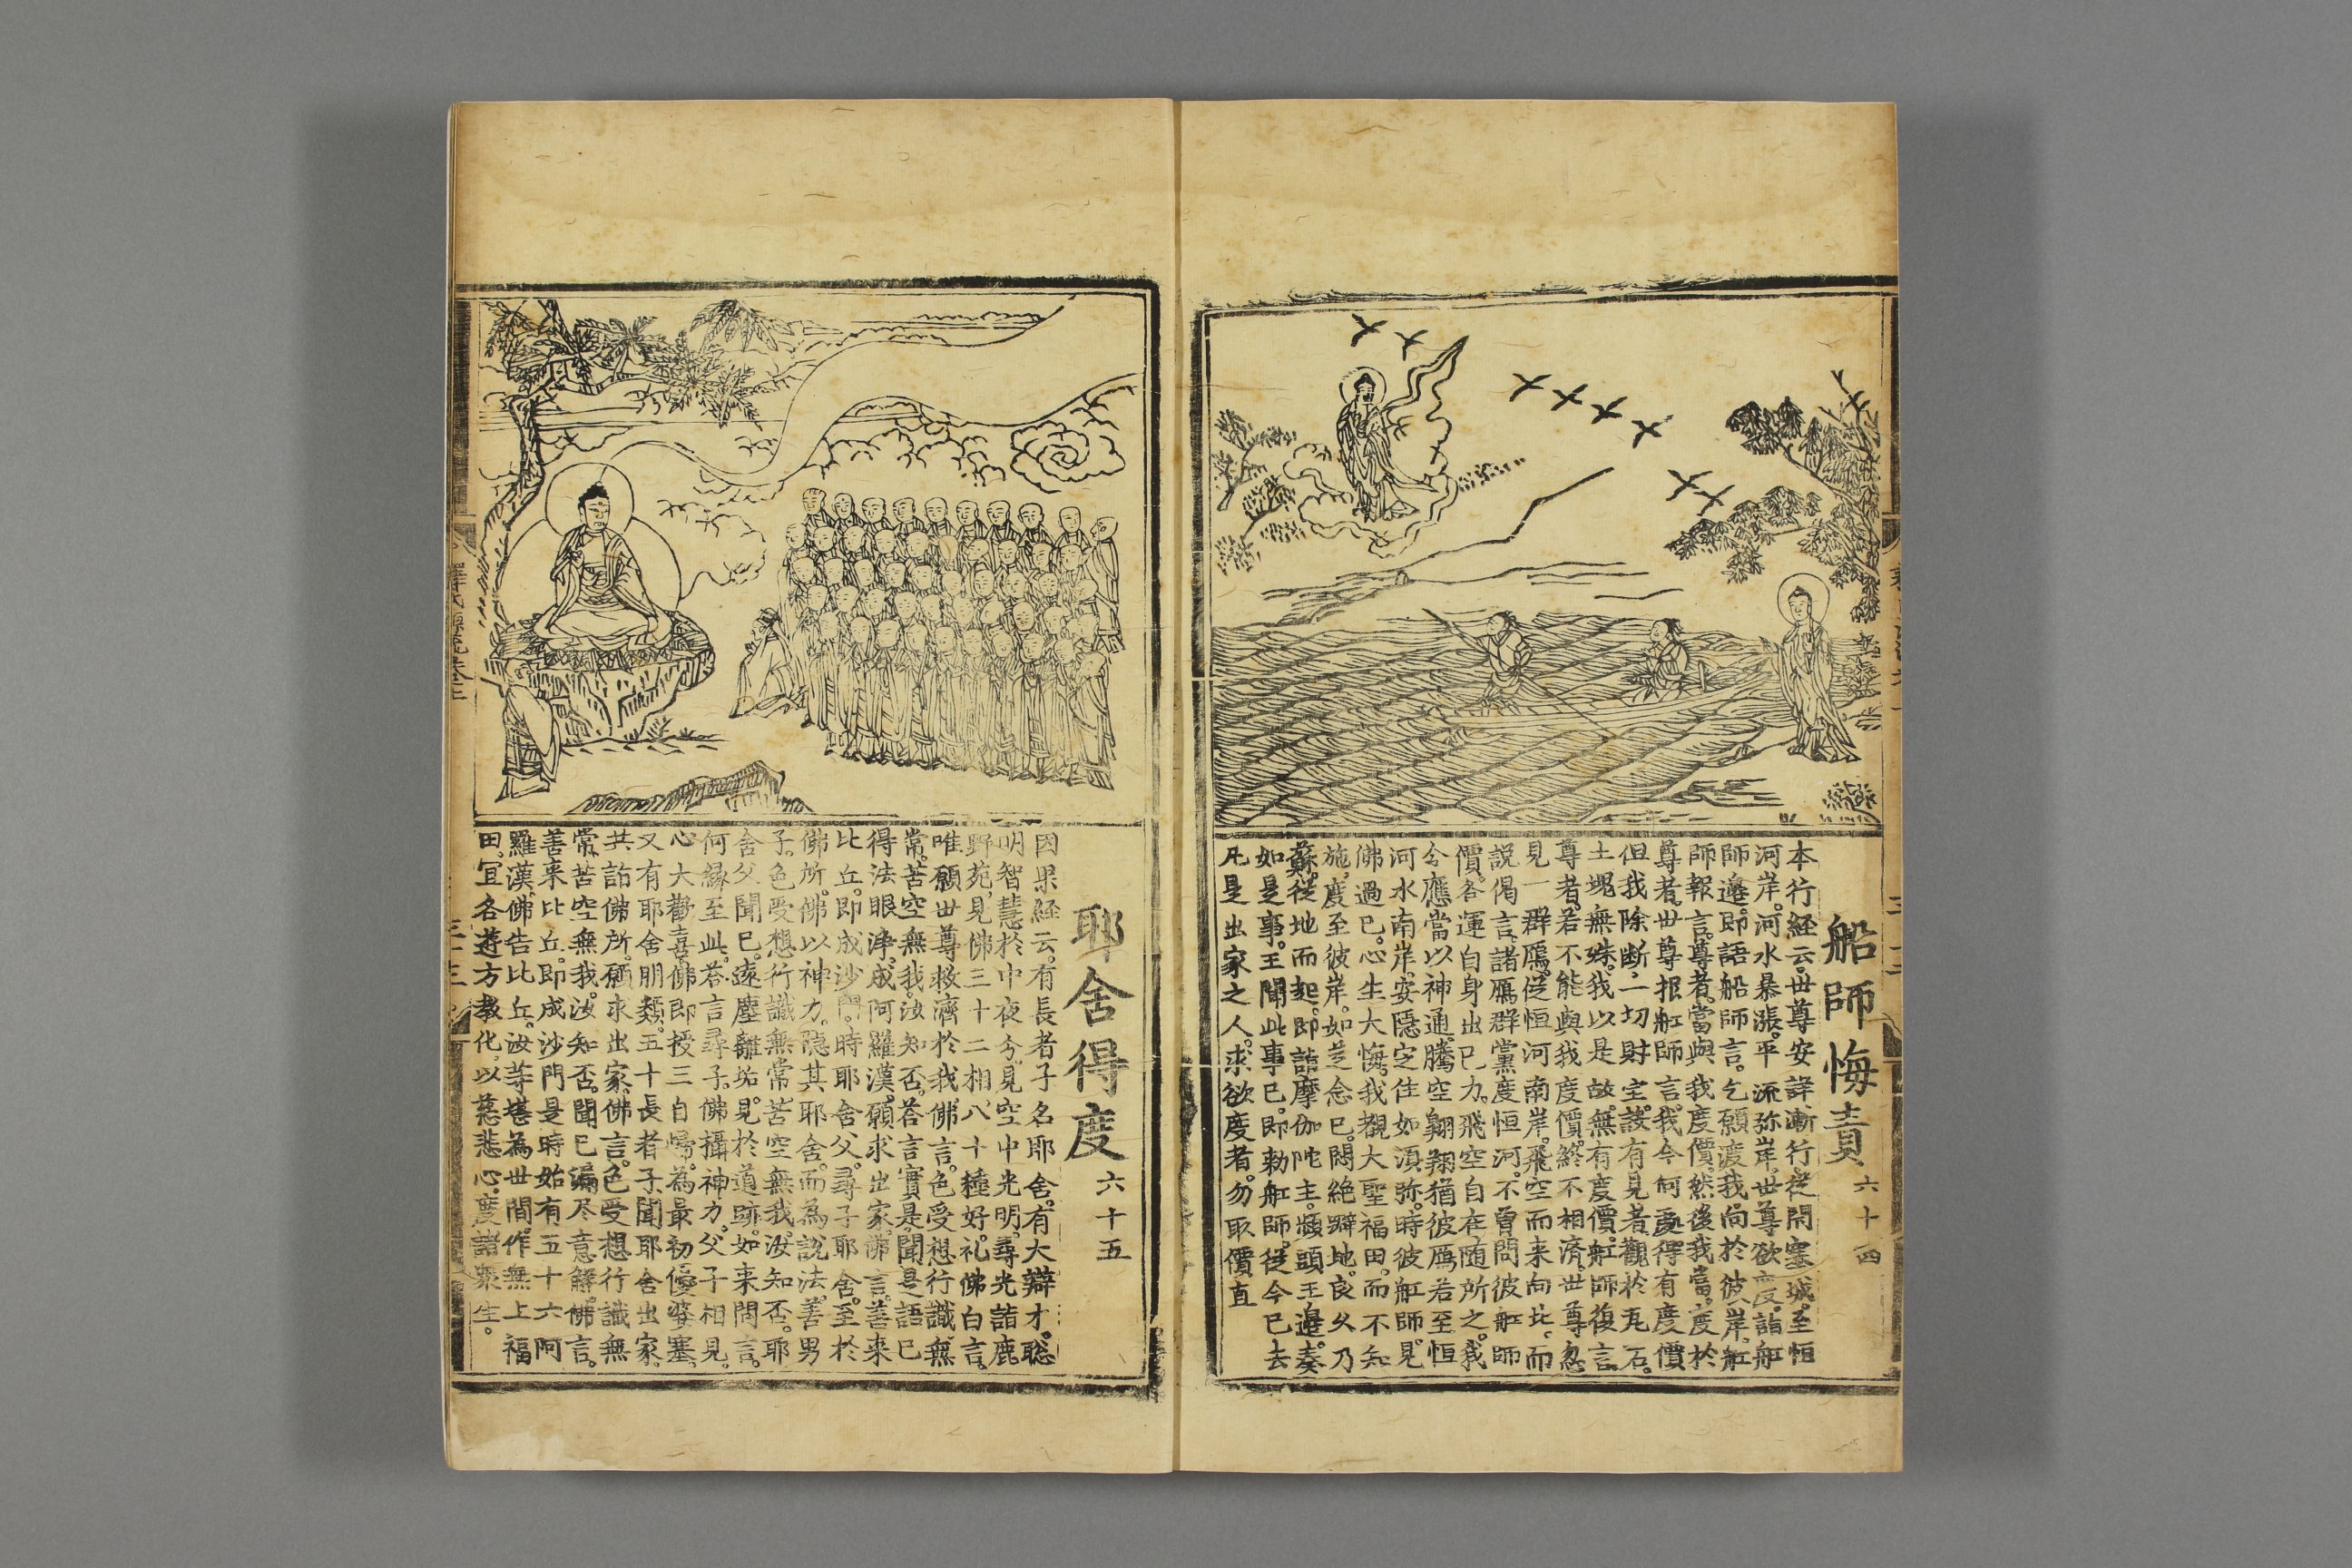 船師悔責 六十四
本行経云。世尊安詳漸行。従閈塞城。至恒
河岸。河水暴漲。平流弥岸。世尊欲度。詣舡
師邊。即語船師言。乞願渡我。向於彼岸。舡
師報言。尊者。當與我度價。然後我當。度於
尊者。世尊報舡師言。我今何處得有度價
但我除断。一切財宝。設有見者。觀於瓦石。
土塊無殊。我以是故。無有度價。舡師復言
尊者。若不能與我度價。終不相濟。世尊忽
見一群鴈。従恒河南岸。飛空而来向北。而
說偈言。諸鴈群黨度恒河。不曾問彼舡師
價。各運自身出已力。飛空自在随所之。我
今應當以神通。騰空翱翔猶彼鴈。若至恒
河水南岸。安隱定住如湏弥。時彼舡師。見
佛過已。心生大悔。我觀大聖福田。而不知
施。度至彼岸。如是念已。悶絶躃地。良久乃
蘇。従地而起。即詣摩伽陀主。頻頭王邊。奏
如是事。王聞此事已。即勅舡師。従今已去
凡是出家之人。求欲度者。勿取價直
耶舍得度 六十五
因果経云。有長者子名耶舍。有大辯才。聡
明智慧。於中夜分。見空中光明。尋光詣鹿
野苑。見佛三十二相。八十種好。礼佛白言。
唯願世尊救濟於我。佛言。色受想行識無
常。苦空無我。汝知否。荅言實是。聞是語已
得法眼浄。成阿羅漢。願求出家。佛言。善来
比丘。即成沙門。時耶舍父。尋子耶舍。至於
佛所。佛以神力。隐其耶舍。而為說法。善男
子。色受想行識無常。苦空無我。汝知否。耶
舍父聞已。遠塵離垢。見於道跡。如来問言。
何縁至此。荅言尋子。佛攝神力。父子相見。
心大歡喜。佛即授三自歸。為最初優婆塞。
又有耶舍朋類。五十長者子。聞耶舍出家。
共詣佛所。願求出家。佛言。色受想行識無
常。苦空無我。汝知否。聞已漏尽意解。佛言。
善来比丘。即成沙門。是時始有五十六阿
羅漢。佛告比丘。汝等堪為世間。作無上福
田。冝各遊方教化。以慈悲心。度諸衆生。